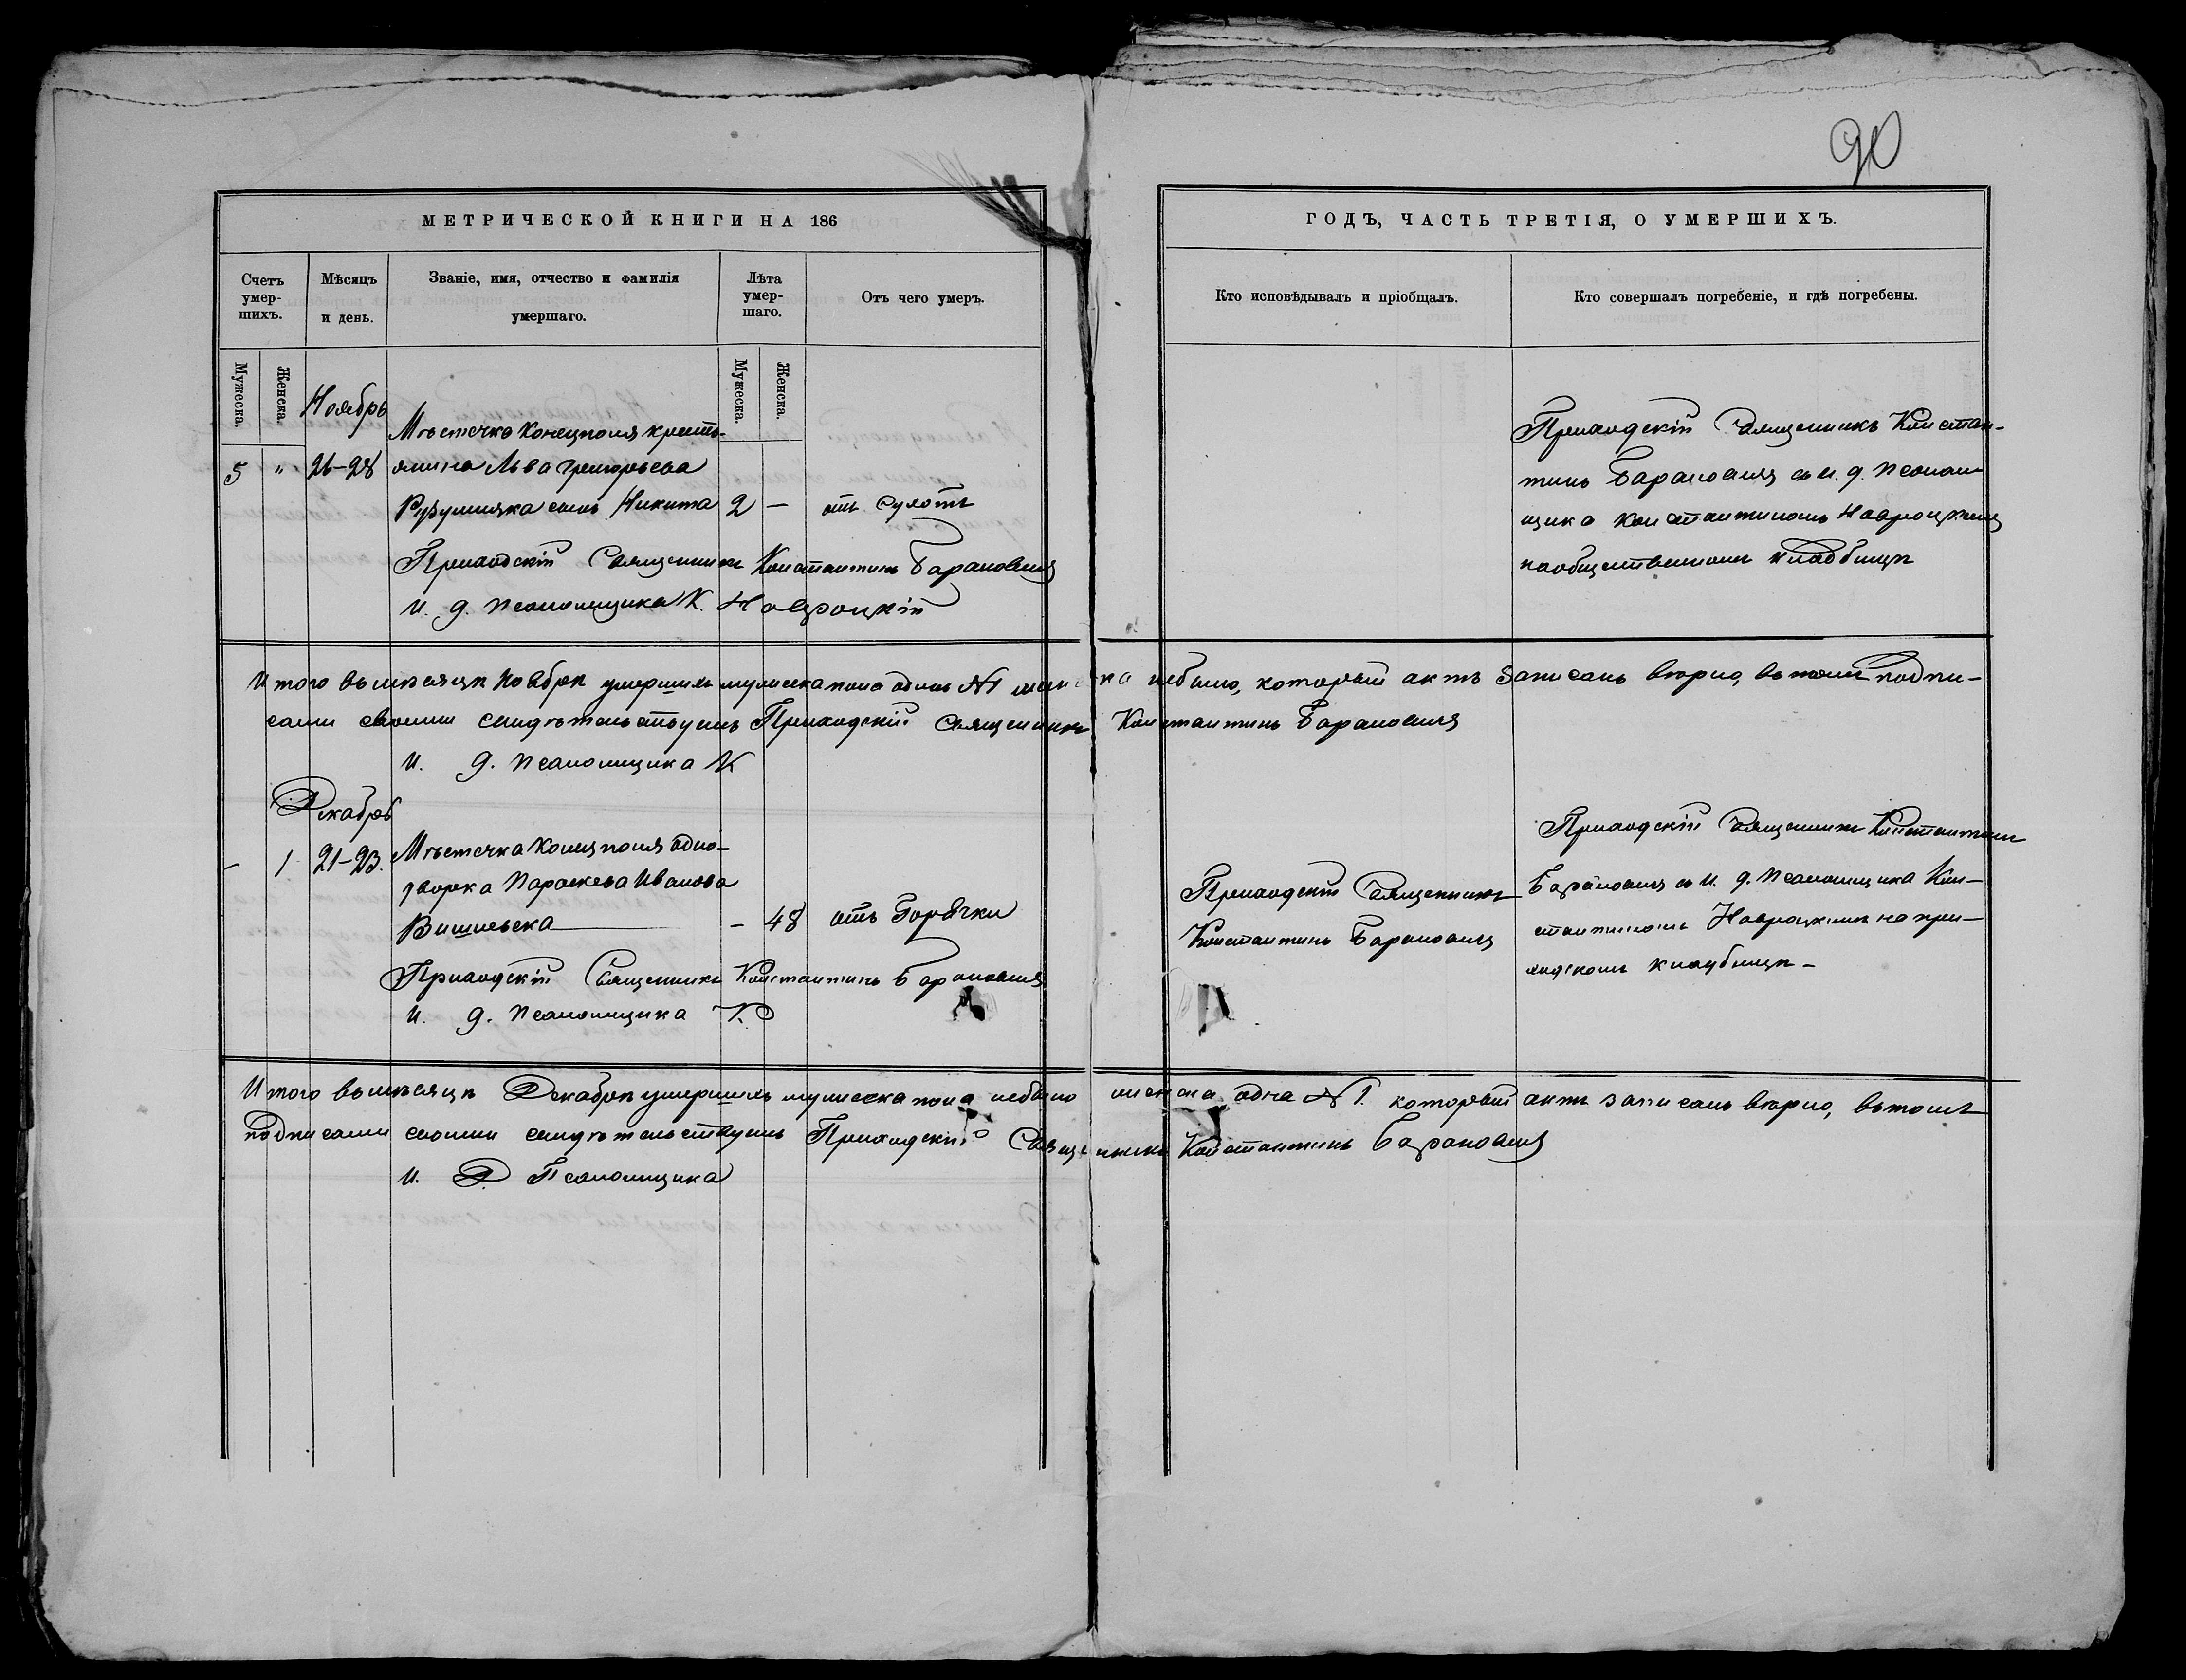 90
МЕТРИЧЕСКОЙ КНИГИ НА 186
ГОДЪ, ЧАСТЬ ТРЕТІЯ, О УМЕРШИХЪ.
Счетъ умер-шихъ.
Мѣсяцъ и день.
Званіе, имя, отчество и фамилія умершаго.
Лѣта умер-шаго.
Отъ чего умеръ.
Кто исповѣдывалъ и пріобщалъ.
Кто совершалъ погребеніе, и гдѣ погребены.
Мужеска.
Женска.
Мужеска.
Женска.
Ноябрь
Мѣстечка Конецполя кресть-
5 " 26-28 янина Льва Григорьева
сынъ Никита 2 — отъ сухотъ
Приходскій Священникъ Константинъ Барановичъ
И. д. псаломщика К. Навроцкій
Приходскій Священникъ Констан-
тинъ Барановичъ съ И. д. псалом
щика Константиномъ Навроцкимъ
на общественномъ кладбищѣ
Итого въ мѣсяцѣ Ноябрѣ умершихъ мужеска пола одинъ №1 женска небыло, который актъ записанъ вѣрно, въ томъ подпи-
сами своими свидѣтельствуемъ Приходскій Священникъ Константинъ Барановичъ
И. д. псаломщика К
Декабрь
- 1 21-23. Мѣстечка Конецполя одно-
дворка Параскева Иванова
Вишневска — - 48 отъ Горячки
Приходскій Священникъ Константинъ Барановичъ
И. д. псаломщика К.
Приходскій Священникъ
Константинъ Барановичъ
Приходскій Священникъ Константинъ
Барановичъ съ И. д. псаломщика Кон-
стантиномъ Навроцкимъ на при-
ходскомъ кладбищѣ -
Итого въ мѣсяцѣ Декабрѣ умершихъ мужеска пола небыло женска одна №1. который актъ записанъ вѣрно, въ томъ
подписами своими свидѣтельствуемъ Приходскій Священникъ Константинъ Барановичъ
И. Д. Псаломщика